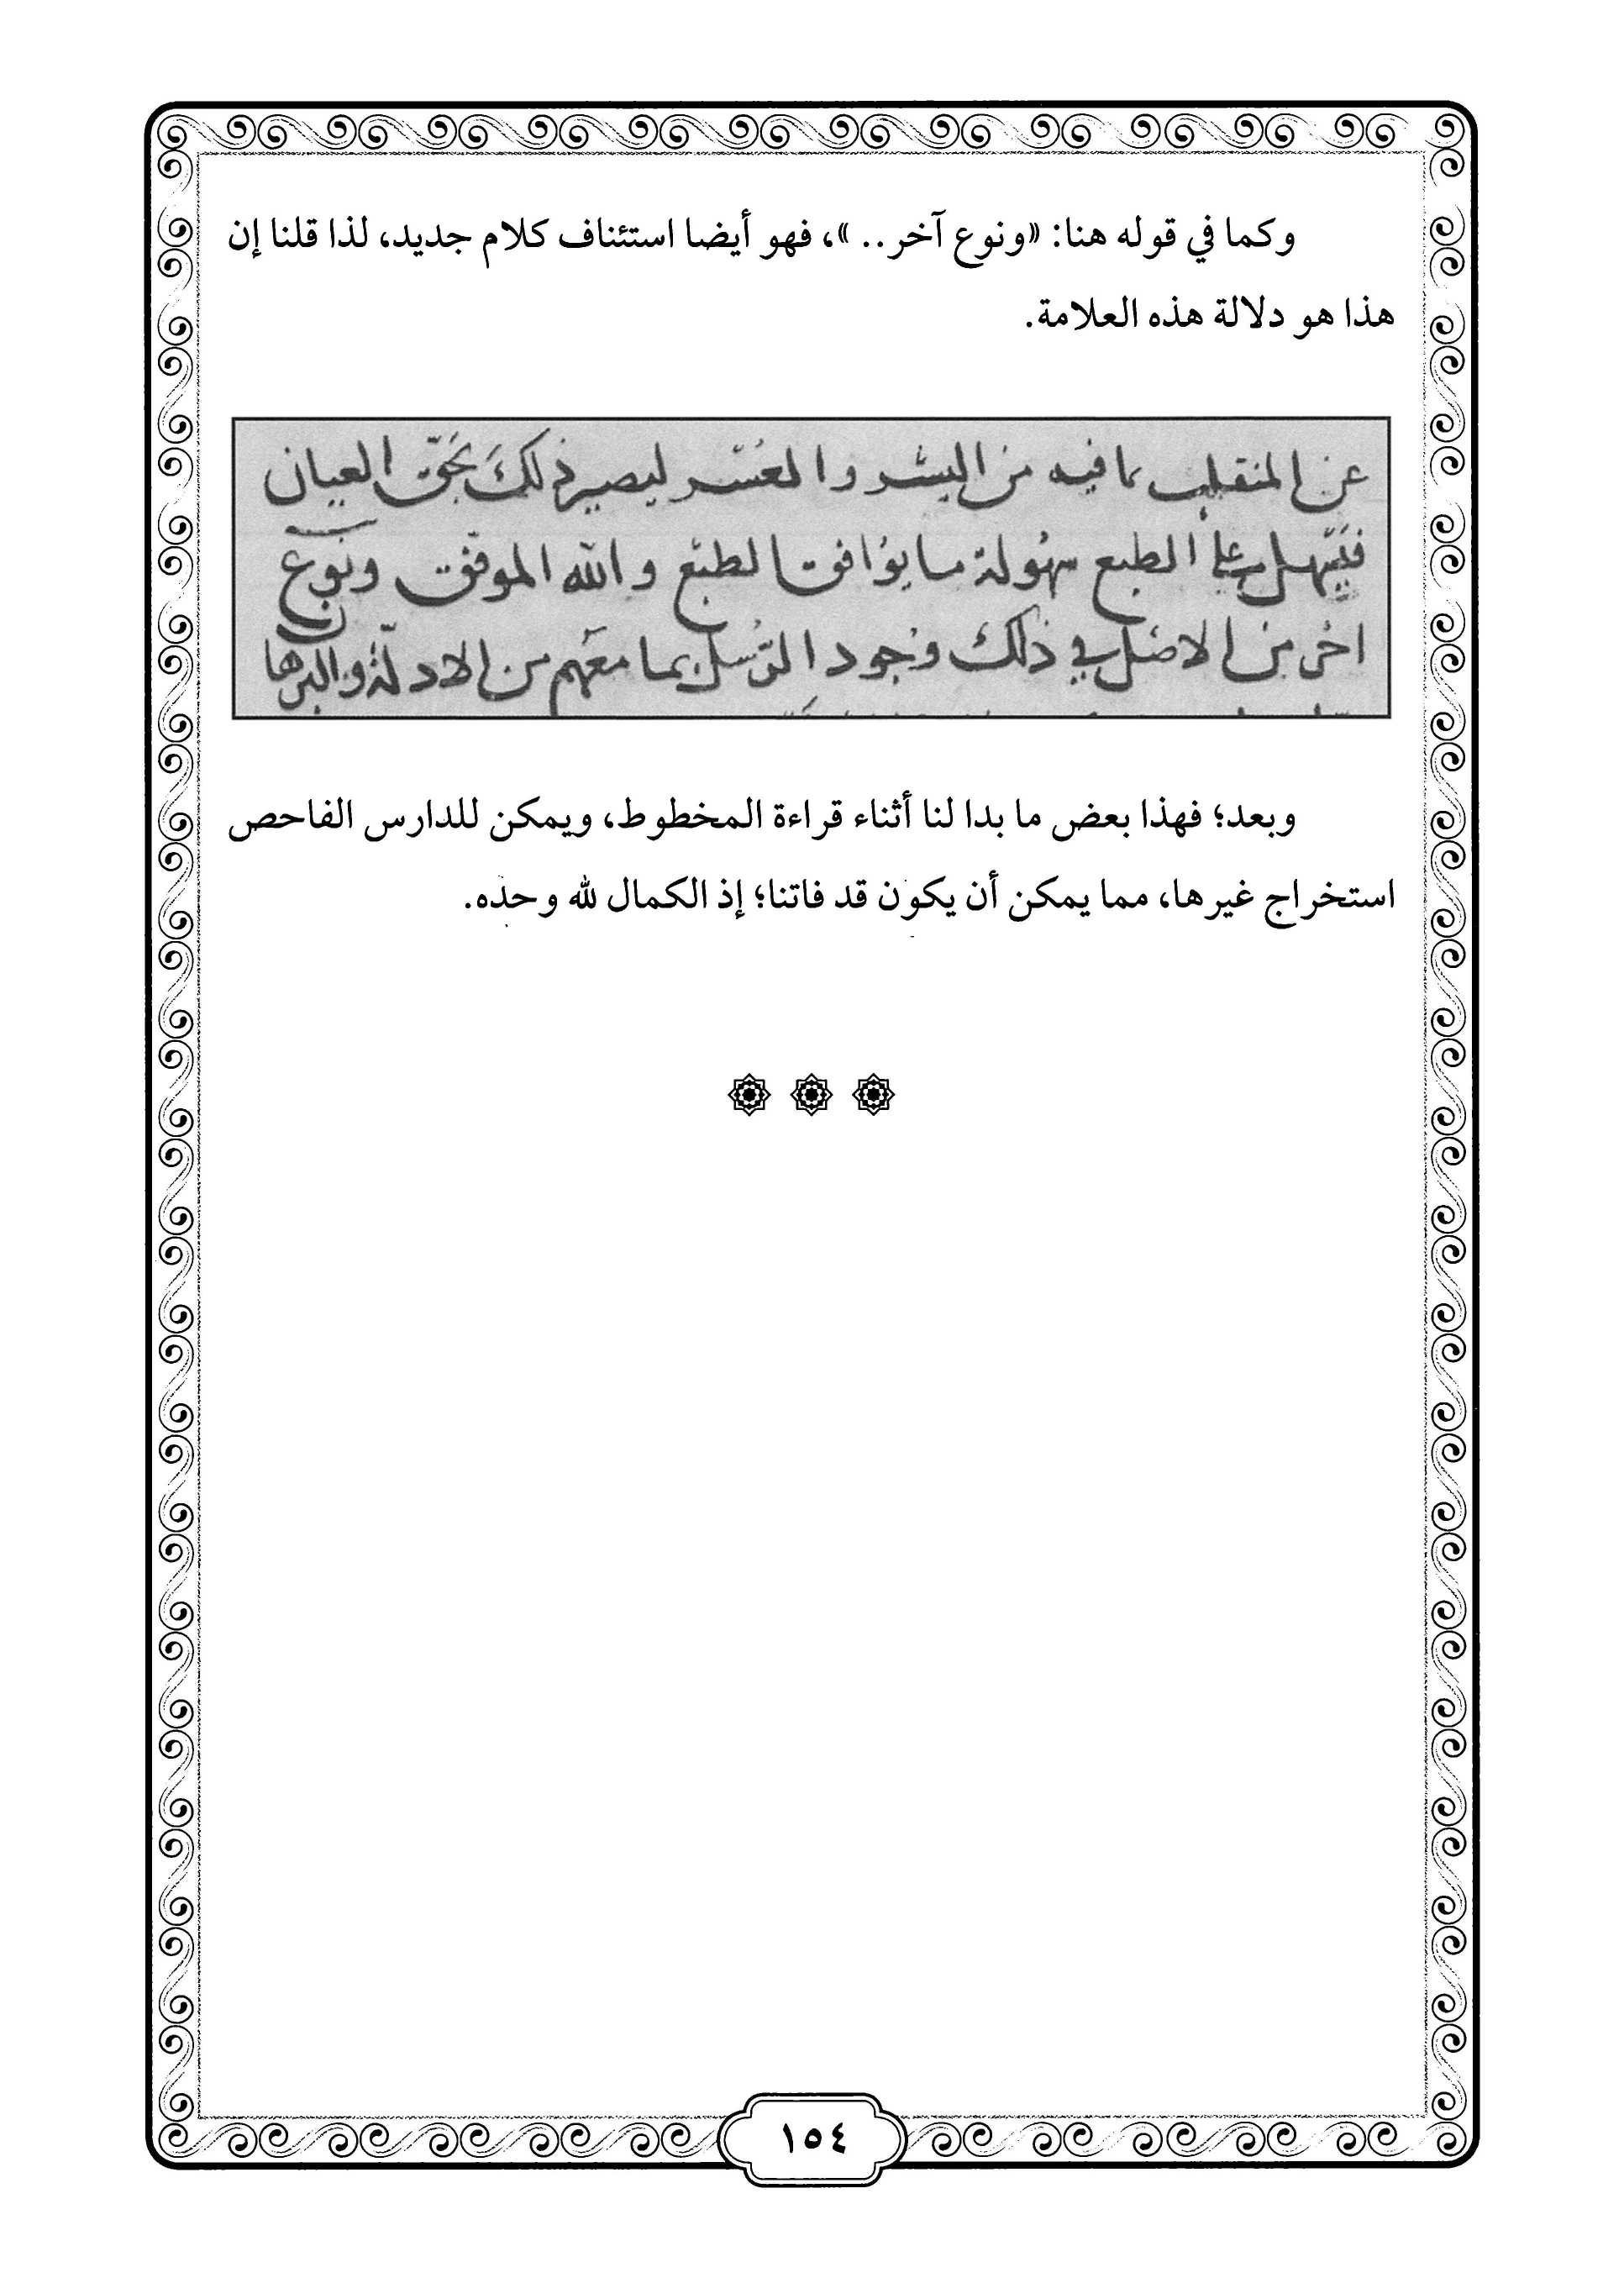 وكما في قوله هنا: «ونوع آخر.. »، فهو أيضا استئناف كلام جديد، لذا قلنا إن
هذا هو دلالة هذه العلامة.
عن المنقلب بما فيه من اليسر والعسر ليصير ذلك بحق العيان
فيسهل على الطبع سهولة ما يوافق الطبع والله الموفق ونوع
اخر من الاصل في ذلك وجود الرسل بما معهم من الادلة والبرها
وبعد؛ فهذا بعض ما بدا لنا أثناء قراءة المخطوط، ويمكن للدارس الفاحص
استخراج غيرها، مما يمكن أن يكون قد فاتنا؛ إذ الكمال لله وحده.
١٥٤